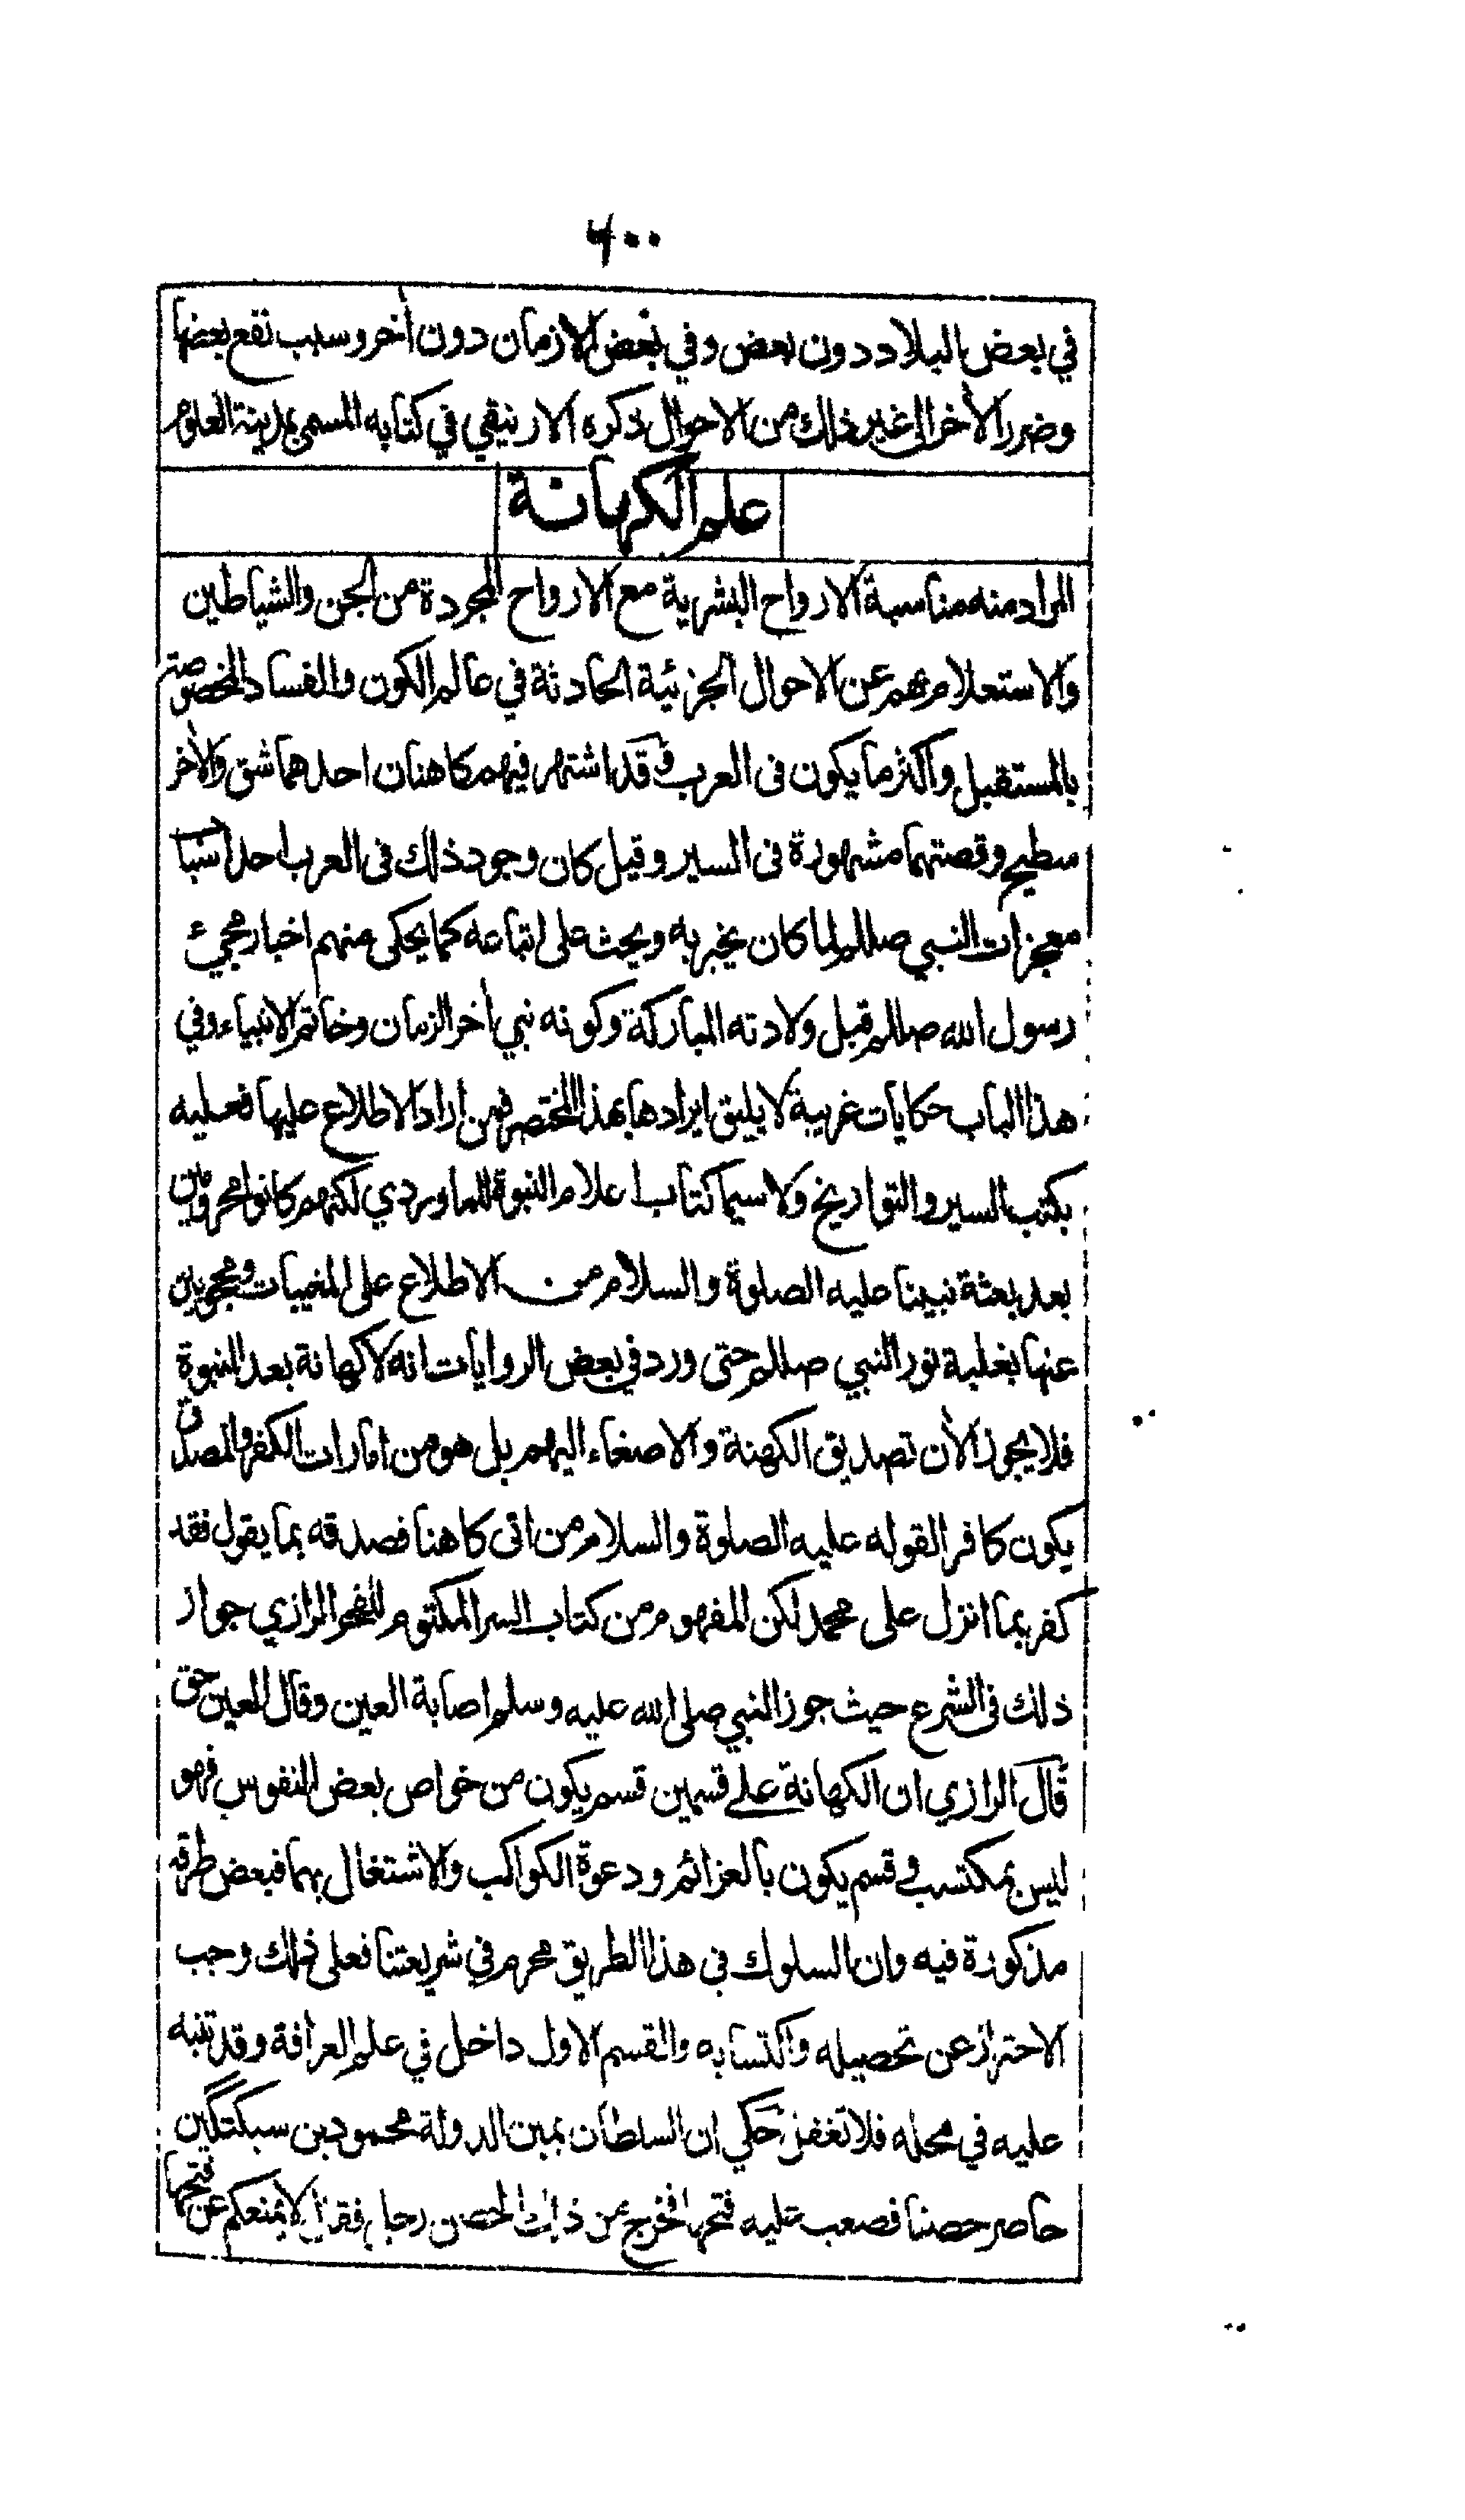 ٦٠٠
في بعض البلاد دون بعض وفي بعض الازمان دون أخر وسبب نفع بعضها
وضرر الأخر الى غير ذلك من الاحوال ذكره الارنيقي في كتابه المسمى بمدينة العلوم
علم الكهانة
المراد منه مناسبة الارواح البشرية مع الارواح المجردة من الجن والشياطين
والاستعلام بهم عن الاحوال الجزئية الحادثة في عالم الكون والفساد المخصوصة
بالمستقبل واكثر ما يكون فى العرب وقد اشتهر فيهم كاهنان احدهما شق والأخر
سطيح وقصتهما مشهورة فى السير وقيل كان وجود ذلك فى العرب احد اسباب
معجزات النبي صللم لما كان يخبر به ويحث على اتباعه كما يحكى عنهم اخبار مجيئ
رسول الله صللم قبل ولادته المباركة وكونه نبي أخر الزمان وخاتم الانبياء وفي
هذا الباب حكايات غريبة لا يليق ايرادها بهذا المختصر فمن اراد الاطلاع عليها فعليه
بكتب السير والتواريخ ولا سيما كتاب اعلام النبوة للماوردي لكنهم كانوا محرومين
بعد بعثة نبينا عليه الصلوة والسلام من الاطلاع على المغيبات ومحجوبين
عنها بغلبة نور النبي صللم حتى ورد في بعض الروايات انه لا كهانة بعد النبوة
فلا يجوز الأن تصديق الكهنة والاصغاء اليهم بل هو من امارات الكفر والمصدق
يكون كافر القوله عليه الصلوة والسلام من اتى كاهنا فصدقه بما يقول فقد
كفر بما انزل على محمد لكن المفهوم من كتاب السر المكتوم للفخر الرازي جواز
ذلك فى الشرع حيث جوز النبي صلى الله عليه وسلم اصابة العين وقال العين حق
قال الرازي ان الكهانة على قسمين قسم يكون من خواص بعض النفوس فهو
ليس بمكتسب وقسم يكون بالعزائم ودعوة الكواكب والاشتغال بهما فبعض طرقه
مذكورة فيه وان السلوك في هذا الطريق محرم في شريعتنا فعلى ذلك وجب
الاحتراز عن تحصيله واكتسابه والقسم الاول داخل في علم العرافة وقد تنبه
عليه في محله فلا تغفل حكي ان السلطان يمين الدولة محمود بن سبكتگين
حاصر حصنا فصعب عليه فتحها فخرج من ذلك الحصن رجل فقال لا يمنعكم عن فتحها